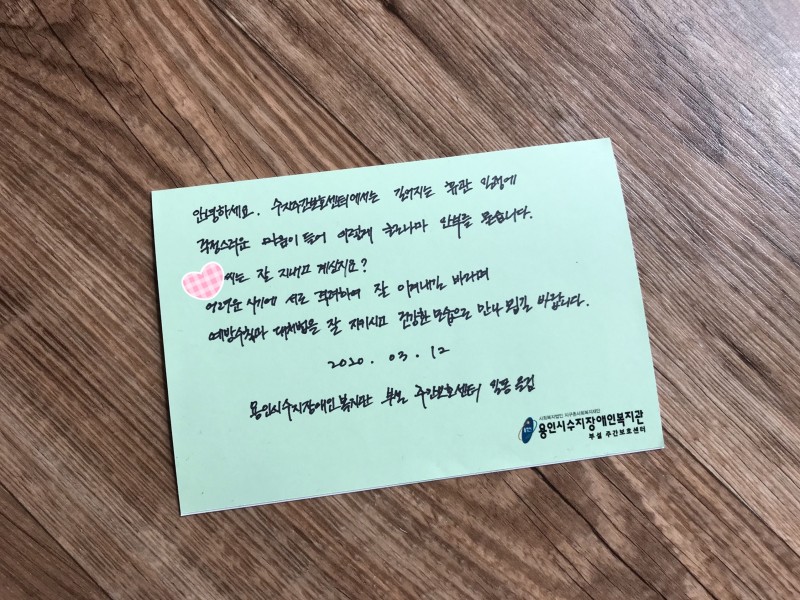 안녕하세요. 수지주간보호센터에서는 길어지는 휴관 일정에
걱정스러운 마음이 들어 이렇게 글로나마 안부를 묻습니다.
에는 잘 지내고 계신지요?
어려운 시기에 서로 격려하여 잘 이겨내길 바라며
예방수칙과 대처법을 잘 지키시고 건강한 모습으로 만나 뵙길 바랍니다.
2020. 03. 12
용인시수지장애인복지관 부설 주간보호센터 일동 올림
사회복지법인 지구촌사회복지재단
용인시수지장애인복지관
부설 주간보호센터